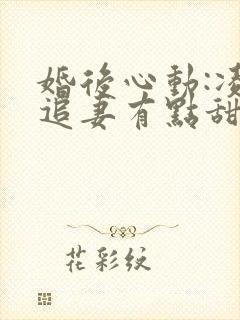 婚後心動:凌
追妻有點甜
花彩紋